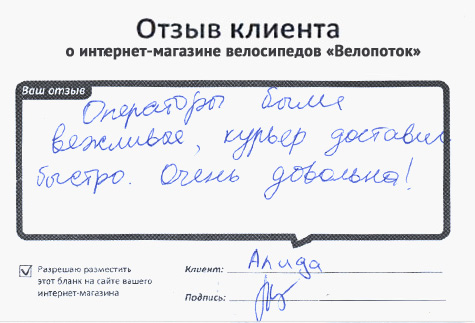 Отзыв клиента
о интернет-магазине велосипедов «Велопоток»
Ваш отзыв
Операторы были
вежливые, курьер доставил
быстро. Очень довольна!
Разрешаю разместить
этот бланк на сайте вашего
интернет-магазина
Клиент: Алида
Подпись: